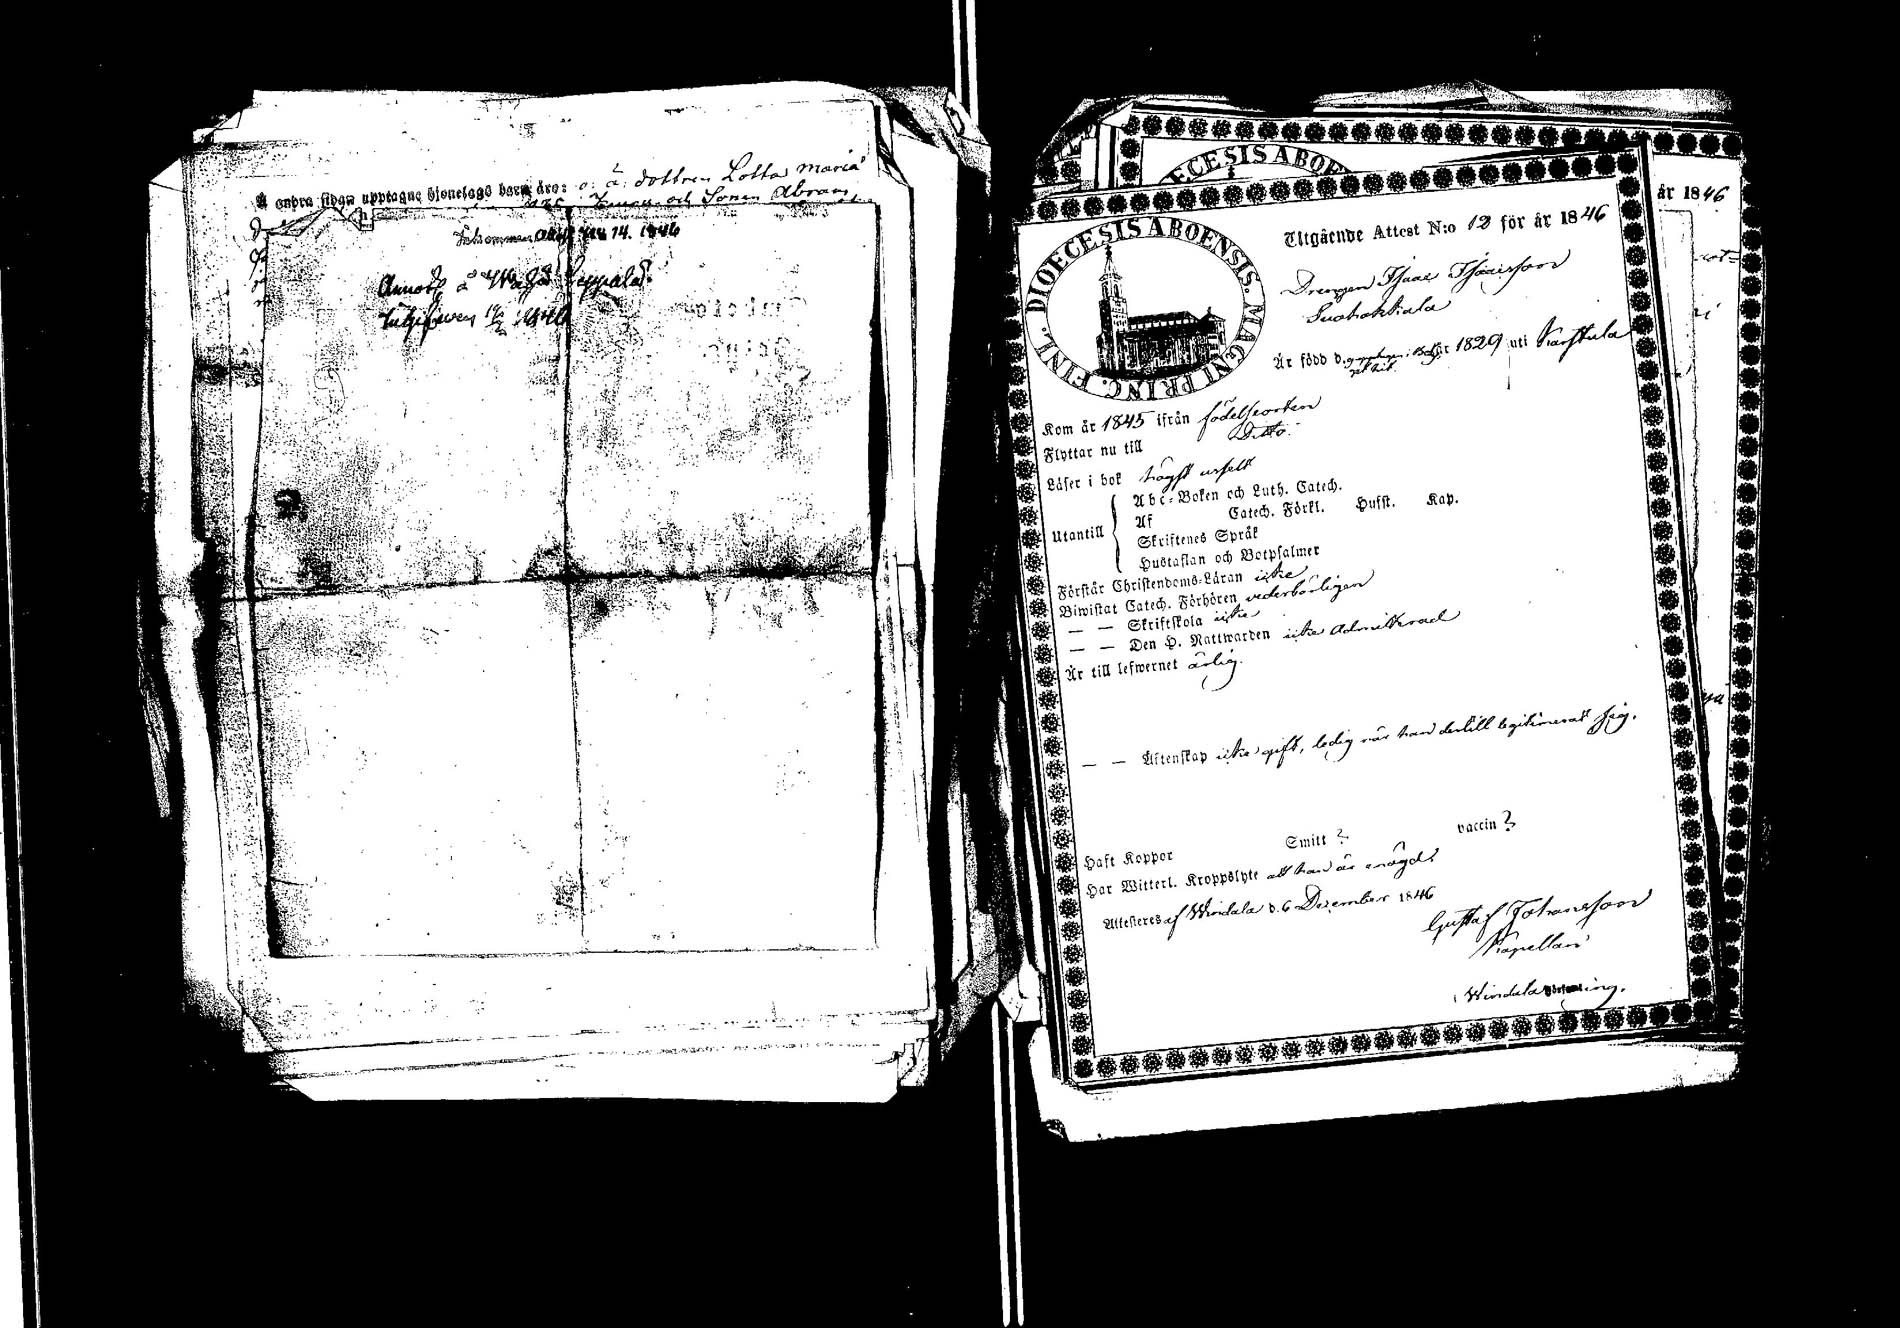 Å andra sidan upptagne hjonelags barn äro: o. ä. dottren Lotta Maria
och Sonen Abram
14. 1846
DIOECESIS ABOENSIS. MAGNI PRINC. FINL.
DIOECESIS ABOE
år 1846
Utgående Attest N:o 12 för år 1846
Drengen Isaac Isacsson
Suohaktiala
Är född d. år 1829 uti Karstula
Kom år 1845 ifrån födelseorten
Flyttar nu till Ditto.
Läser i bok högst uselt
Utantill
Abc-Boken och Luth. Catech.
Af Catech. Förkl. Husst. Kap.
Skriftenes Språk
Hustaflan och Botpsalmer
Förstår Christendoms-Läran icke
Biwistat Catech. Förhören vederbörligen
— — Skriftskola icke
— — Den H. Nattwarden icke admitterad
Är till lefwernet ärlig.
— — Äktenskap icke gift, ledig när han dertill legitimerat sig.
Haft Koppor Smitt ? vaccin ?
Har Witterl. Kroppslyte att han är
Attesteres af Windala d. 6 December 1846
Gustaf Johansson
Kapellan
Windala